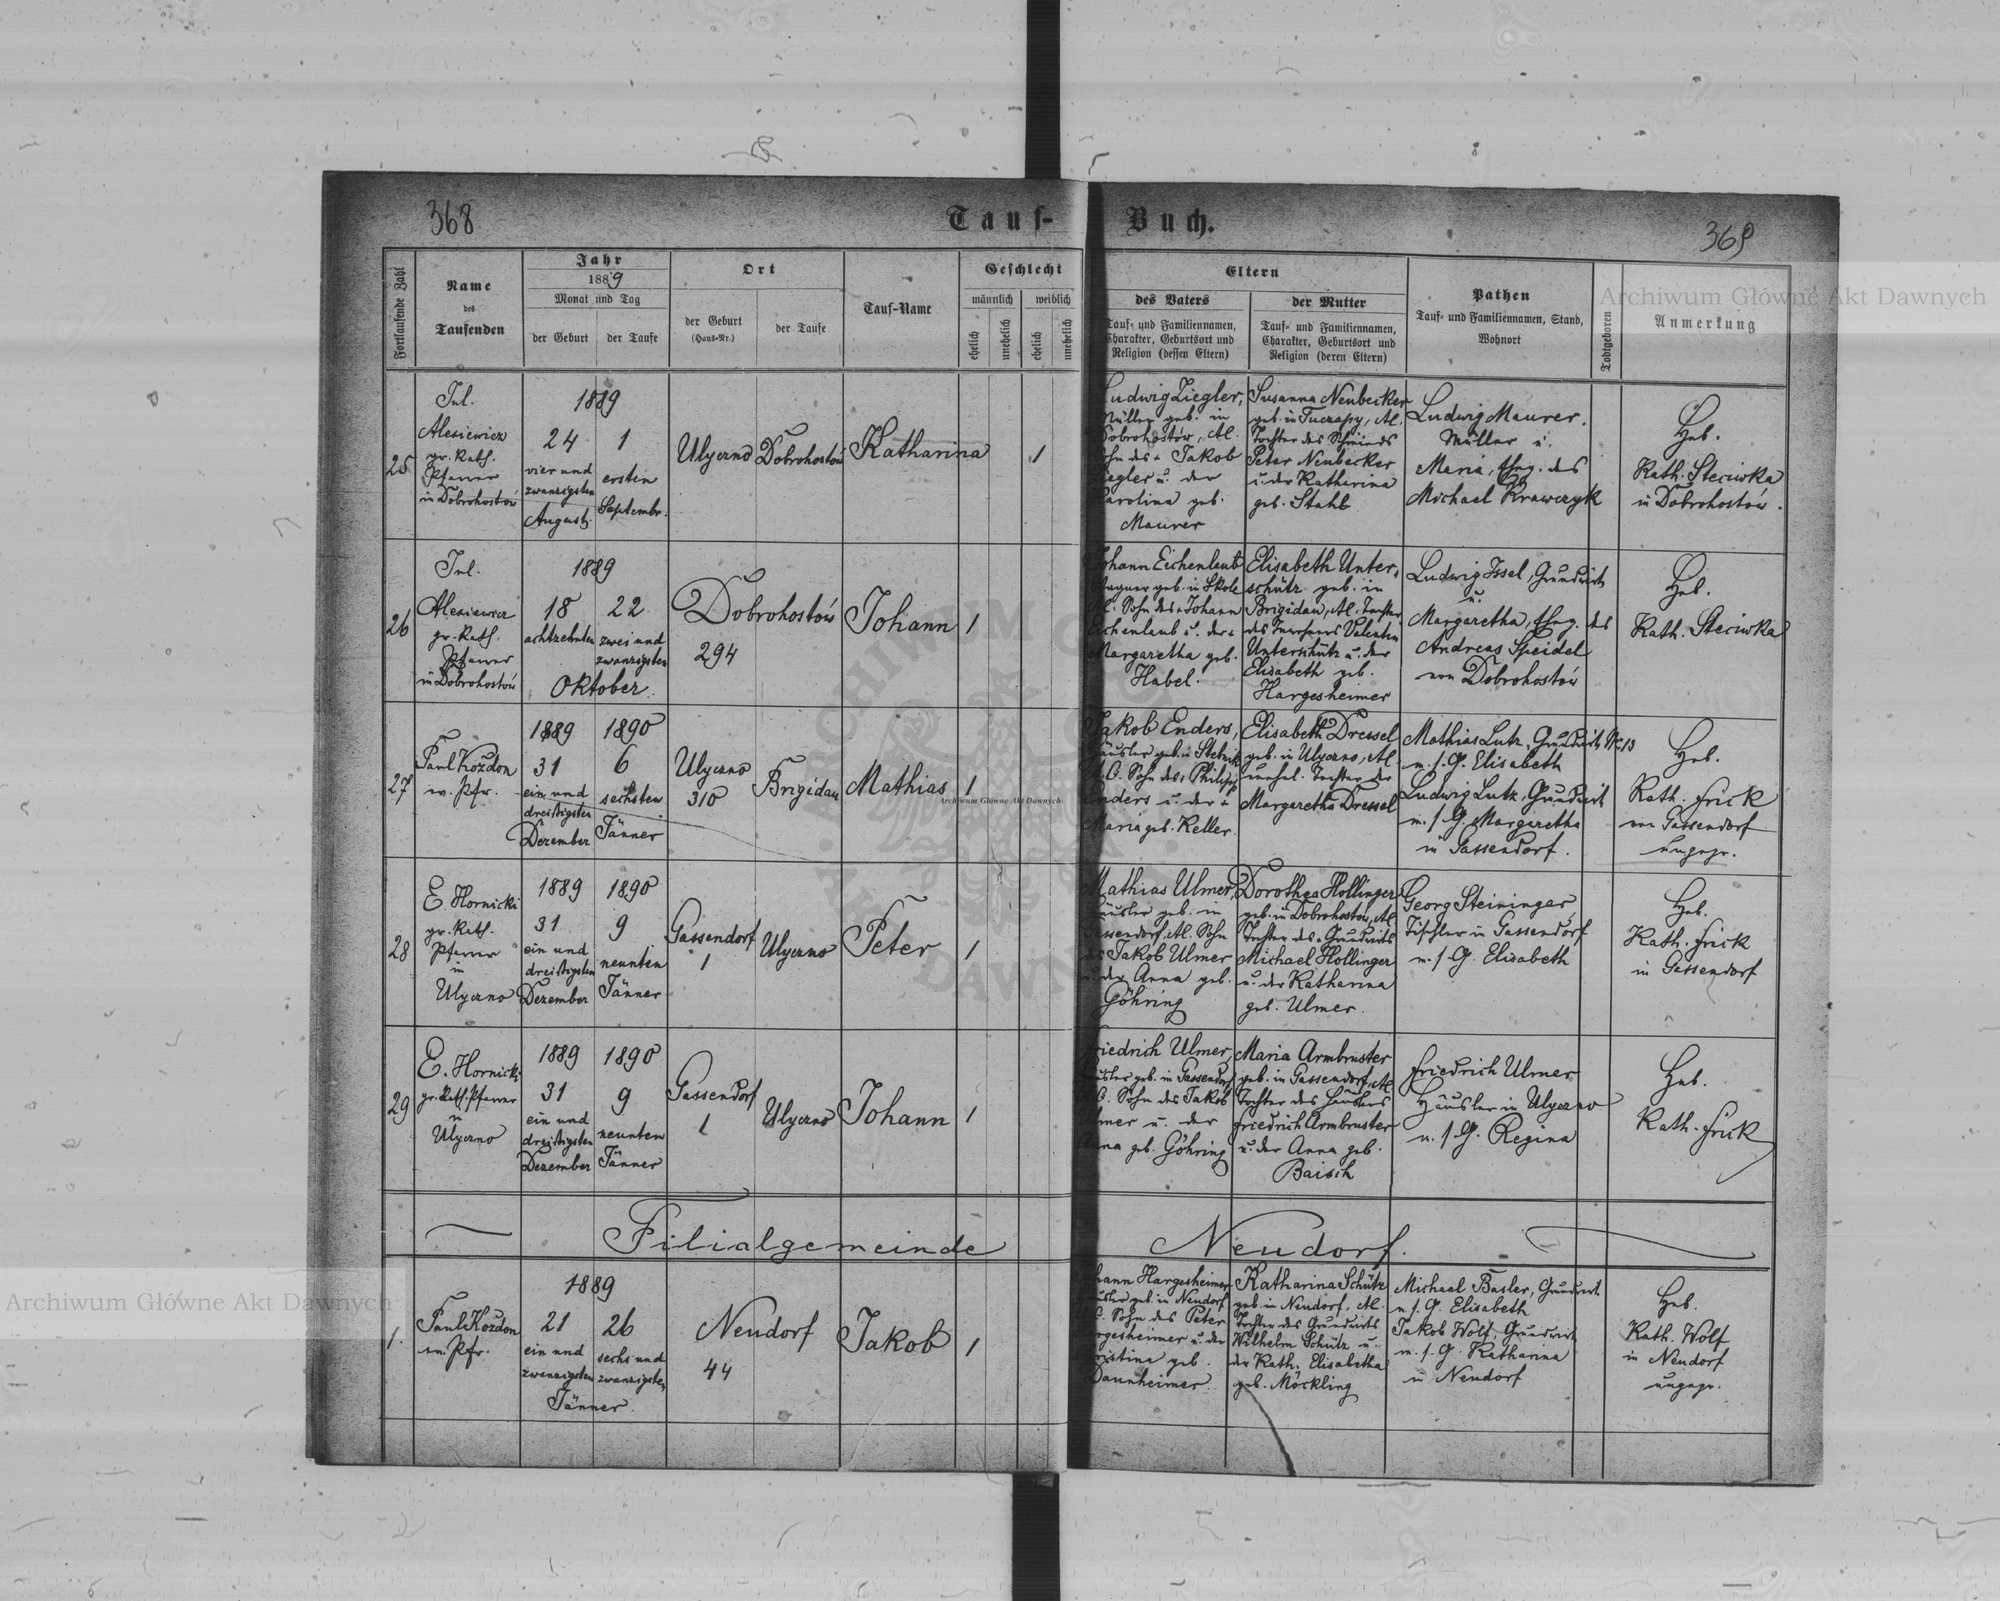 368
Tauf-
Buch.
369
Fortlaufende Zahl
Name
des
Taufenden
Jahr
1889
Monat und Tag
der Geburt
der Taufe
Ort
der Geburt
(Haus-Nr.)
der Taufe
Tauf-Name
Geschlecht
männlich
weiblich
ehelich
unehelich
ehelich
unehelich
Eltern
des Vaters
Tauf- und Familiennamen,
Charakter, Geburtsort und
Religion (dessen Eltern)
der Mutter
Tauf- und Familiennamen,
Charakter, Geburtsort und
Religion (deren Eltern)
Pathen
Tauf- und Familiennamen, Stand,
Wohnort
Todtgeboren
Anmerkung
25
Jul.
Alesiewicz
gr. Kath.
Pfarrer
in Dobrohostów
1889
24
vier und
zwanzigsten
August
1
ersten
Septembr.
Ulyczno
Dobrohostów
Katharina
1
Ludwig Ziegler,
Müller geb. in
Dobrohostów, A.C.
Sohn des + Jakob
Ziegler u. der
Carolina geb.
Maurer
Susanna Neubecker
geb. in Tucrapy, A.C.
Tochter des Schmieds
Peter Neubecker
u. der Katharina
geb. Stahl
Ludwig Maurer.
Müller u.
Maria, Ehg. des
Michael Krawczyk
Heb.
Kath. Steciwka
in Dobrohostów.
26
Jul.
Alesiewicz
gr. Kath.
Pfarrer
in Dobrohostów
1889
18
achtzehnten
22
zwei und
zwanzigsten
Oktober.
Dobrohostów
294
Johann
1
Johann Eichenlaub
Wagner geb. in Skole
A.C. Sohn des + Johann
Eichenlaub u. der +
Margaretha geb.
Habel.
Elisabeth Unter-
schütz geb. in
Brigidau, A.C. Tochter
des Inwohners Valentin
Unterschütz u. der
Elisabeth geb.
Hargesheimer
Ludwig Issel, Grundwirth
u.
Margaretha, Ehg. des
Andreas Speidel
von Dobrohostów
Heb.
Kath. Steciwka
27
Paul Kozdon
ev. Pfr.
1889
31
ein und
dreißigsten
Dezember
1890
6
sechsten
Jänner
Ulyczno
310
Brigidau
Mathias
1
Jakob Enders,
Häusler geb. in
A.C. Sohn des + Philipp
Enders u. der +
Maria geb. Keller.
Elisabeth Dressel
geb. in Ulyczno, A.C.
unehel. Tochter der
Margaretha Dressel
Mathias Lutz, Grundwirth Nr. 13
m. s. G. Elisabeth
Ludwig Lutz, Grundwirth
m. s. G. Margaretha
in Gassendorf.
Heb.
Kath. Frick
von Gassendorf
ungepr.
28
E. Hornicki
gr. Kath.
Pfarrer
in
Ulyczno
1889
31
ein und
dreißigsten
Dezember
1890
9
neunten
Jänner
Gassendorf
1
Ulyczno
Peter
1
Mathias Ulmer,
Häusler geb. in
Gassendorf, A.C. Sohn
des Jakob Ulmer
u. der Anna geb.
Göhring
Dorothea Hollinger
geb. in Dobrohostów, A.C.
Tochter des Grundwirts
Michael Hollinger
u. der Katharina
geb. Ulmer.
Georg Steininger,
Tischler in Gassendorf
m. s. G. Elisabeth
Heb.
Kath. Frick
in Gassendorf
29
E. Hornicki
gr. Kath. Pfarrer
in
Ulyczno
1889
31
ein und
dreißigsten
Dezember
1890
9
neunten
Jänner
Gassendorf
1
Ulyczno
Johann
1
Friedrich Ulmer,
Häusler geb. in Gassendorf
A.C. Sohn des Jakob
Ulmer u. der
Anna geb. Göhring
Maria Armbruster
geb. in Gassendorf, A.C.
Tochter des Häuslers
Friedrich Armbruster
u. der Anna geb.
Baisch
Friedrich Ulmer
Häusler in Ulyczno
u. s. G. Regina
Heb.
Kath. Frick
Filialgemeinde
Neudorf.
1.
Paul Kozdon
ev. Pfr.
1889
21
ein und
zwanzigsten
26
sechs und
zwanzigsten
Jänner.
Neudorf
44
Jakob
1
Johann Hargesheimer
Häusler geb. in Neudorf
A.C. Sohn des Peter
Hargesheimer u. der
Christina geb.
Daunheimer.
Katharina Schütz
geb. in Neudorf, A.C.
Tochter des Grundwirts
Wilhelm Schütz u.
der Kath. Elisabetha
geb. Möckling
Michael Basler, Grundwirt
m. s. G. Elisabeth
Jakob Wolf, Grundwirt
m. s. G. Katharina
in Neudorf
Heb.
Kath. Wolf
in Neudorf
ungepr.
Archiwum Główne Akt Dawnych
Archiwum Główne Akt Dawnych
Archiwum Główne Akt Dawnych